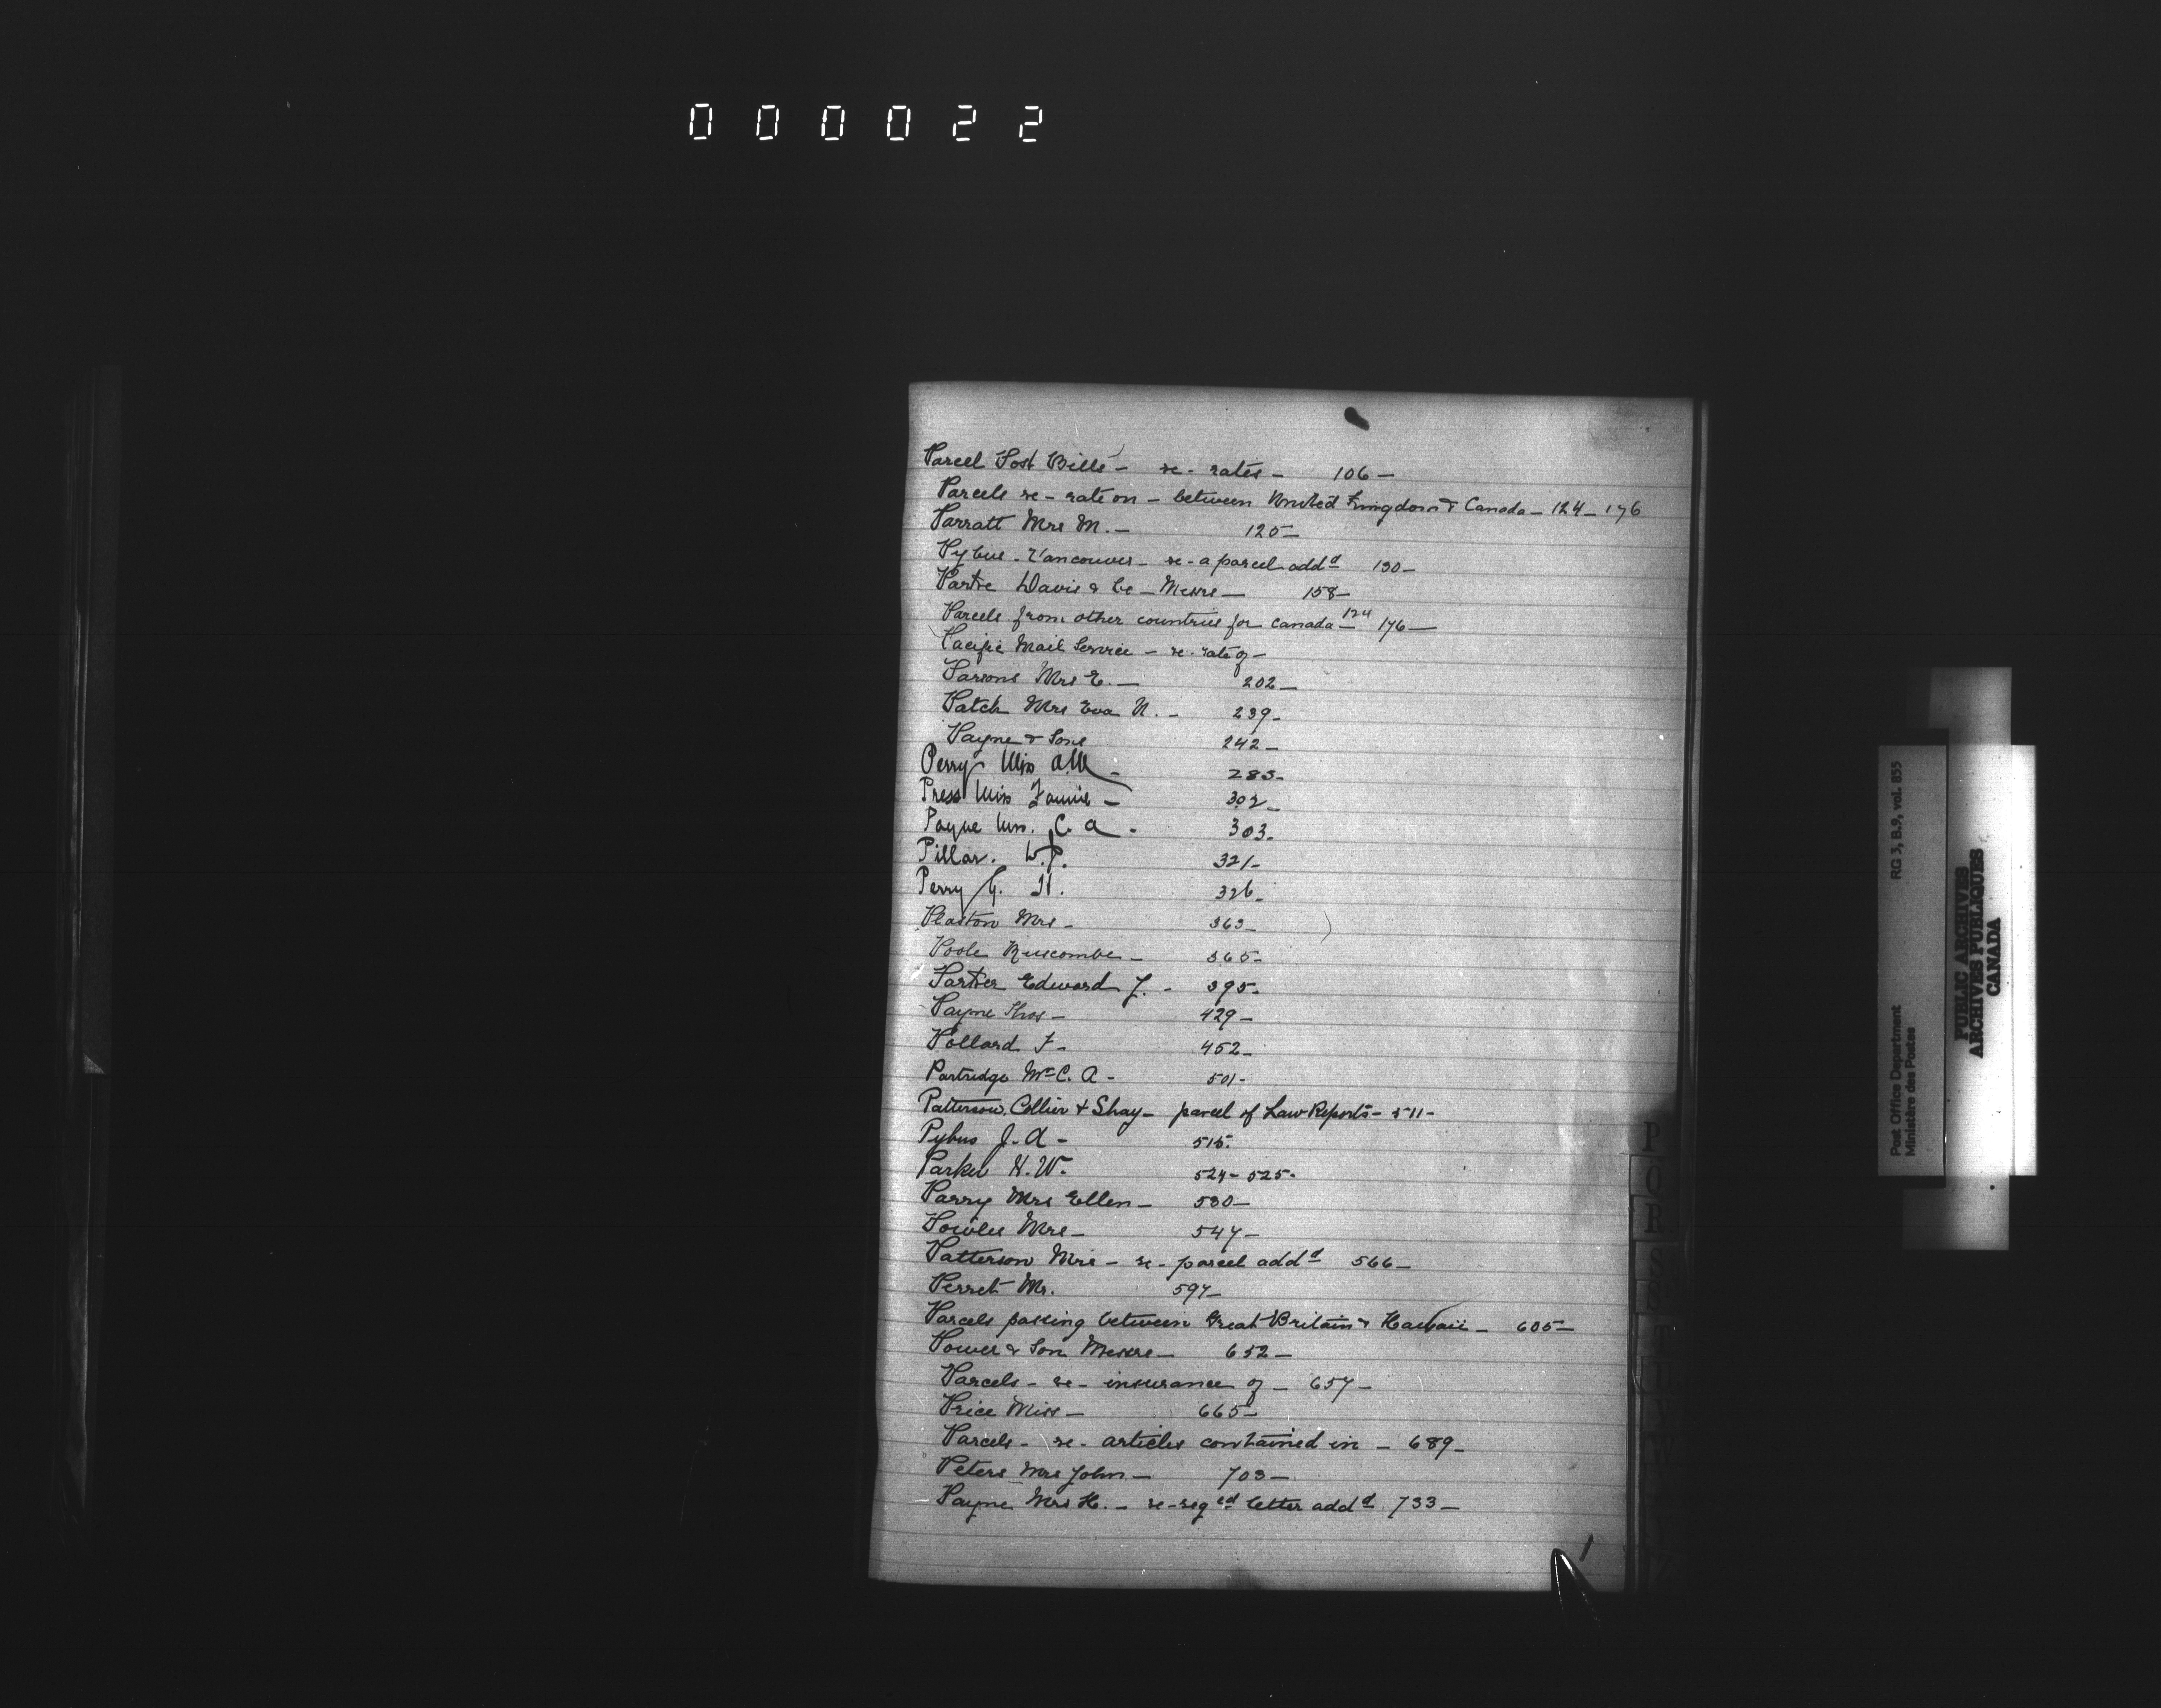 000022
Parcel Post Bills - re - rates - 106 -
Parcels re - rate on - between United Kingdom & Canada - 124 - 176
Parratt Mrs M. - 125 -
Pybus - Vancouver - re - a parcel addd 130 -
Davis & Co - Messrs - 158 -
Parcels from other countries for Canada - 124 176 -
Pacific Mail Service - re - rate of -
Parsons Mrs E. - 202 -
Patch Mrs Eva N. - 239 -
Payne & Sons 242 -
Perry Miss A.M - 283 -
Press Miss Fannie - 302 -
Payne Mrs. C. A - 303 -
Pillar. W.P. 321 -
Perry G. H. 326 -
Plaston Mrs - 363 -
Poole Ruscombe - 365 -
Edward J. - 395 -
Payne Thos - 429 -
Pollard F - 452 -
Partridge Mr C. A - 501 -
Patterson, Collier & Shay - parcel of Law Reports - 511 -
Pybus J. A - 515 -
Parker H. W. 524 - 525 -
Parry Mrs Ellen - 530 -
Powles Mrs - 547 -
Patterson Mrs - re - parcel addd 566 -
Perret Mr. 597 -
Parcels passing between Great Britain & Hawaii - 605 -
Power & Son Messrs - 652 -
Parcels - re - insurance of - 657 -
Price Miss - 665 -
Parcels - re - articles contained in - 689 -
Peters Mrs John - 703 -
Payne Mrs H. - re - reged letter addd 733 -
P
O
R
S
T
Z
Post Office Department RG 3, B.9, vol. 855
Ministère des Postes
PUBLIC ARCHIVES
ARCHIVES PUBLIQUES
CANADA